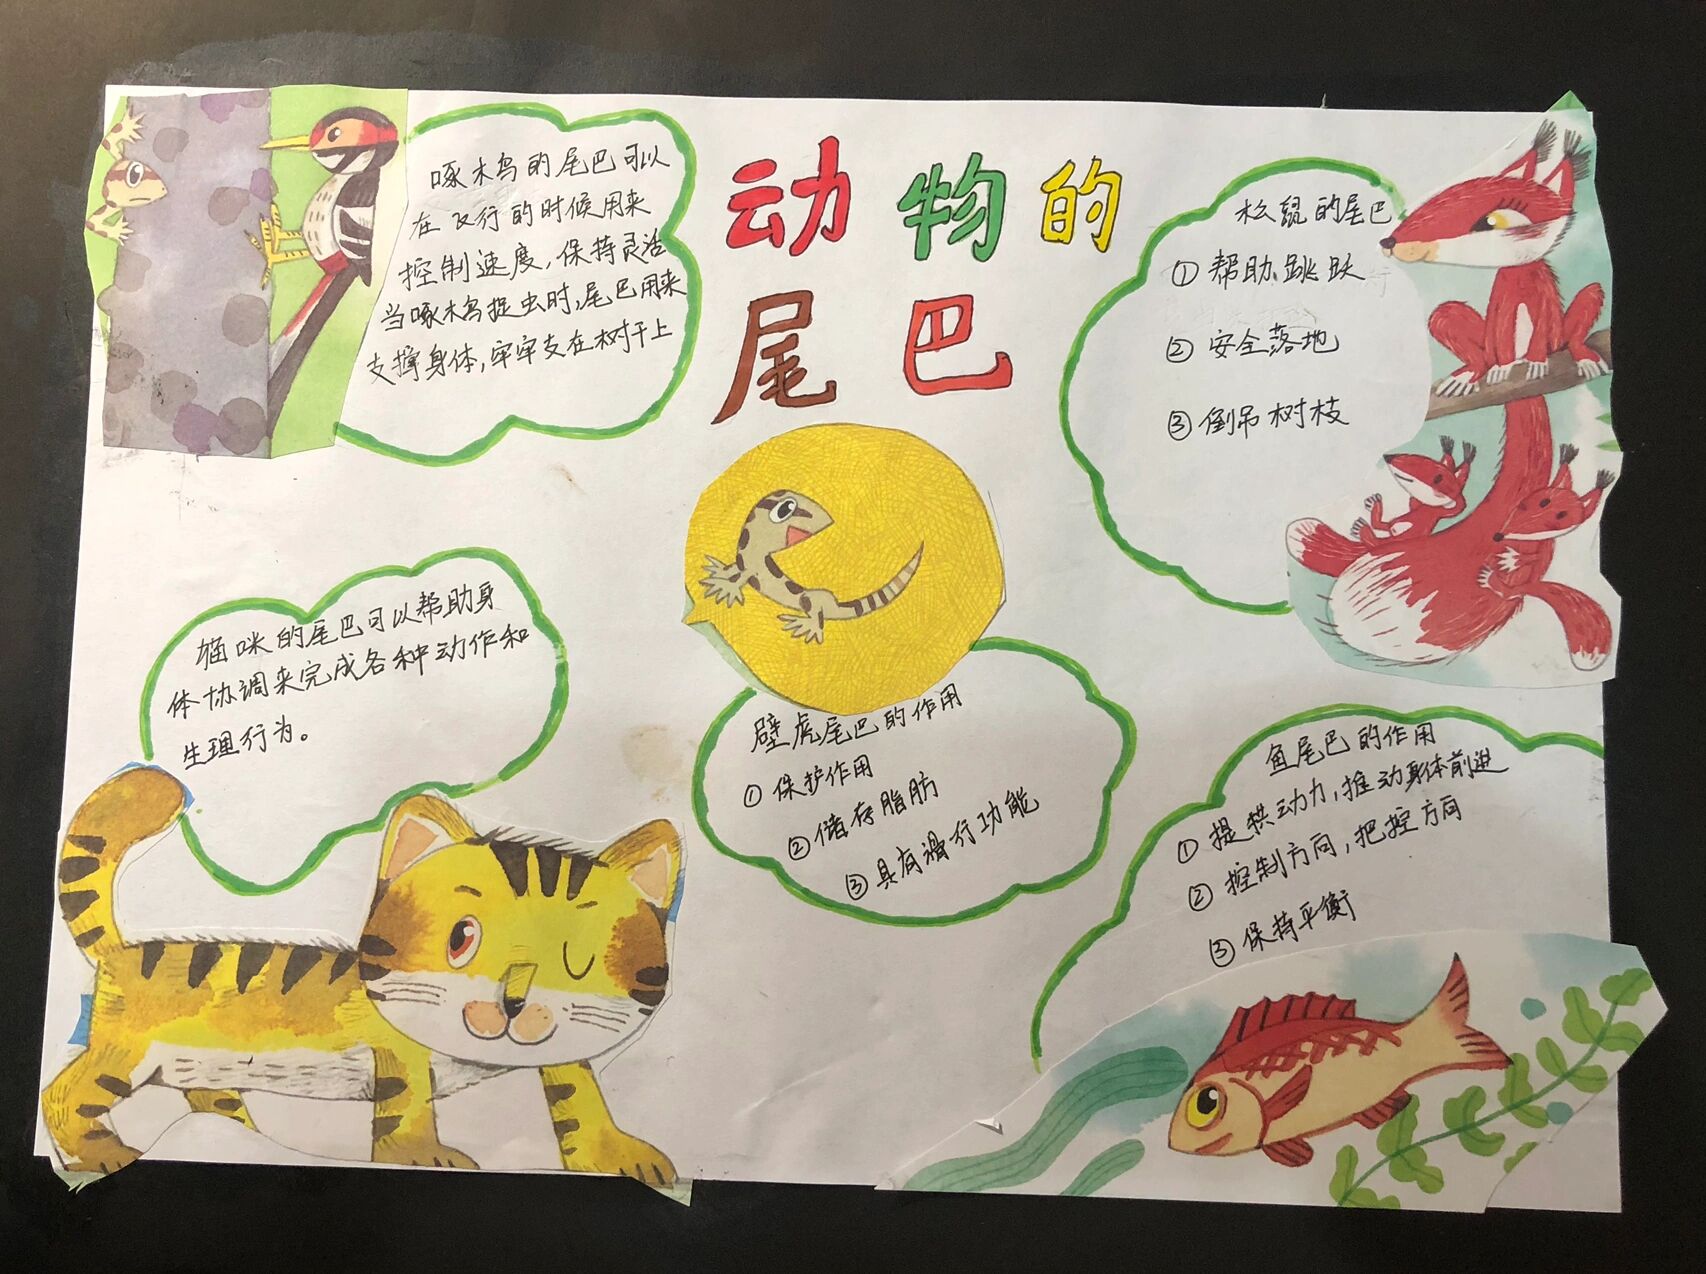 动物的
尾巴
啄木鸟的尾巴可以
在飞行的时候用来
控制速度,保持灵活
当啄木鸟捉虫时,尾巴用来
支撑身体,牢牢支在树干上
松鼠的尾巴
①帮助跳跃
②安全落地
③倒吊树枝
猫咪的尾巴可以帮助身
体协调来完成各种动作和
生理行为。
壁虎尾巴的作用
①保护作用
②储存脂肪
③具有滑行功能
鱼尾巴的作用
①提供动力,推动身体前进
②控制方向,把控方向
③保持平衡